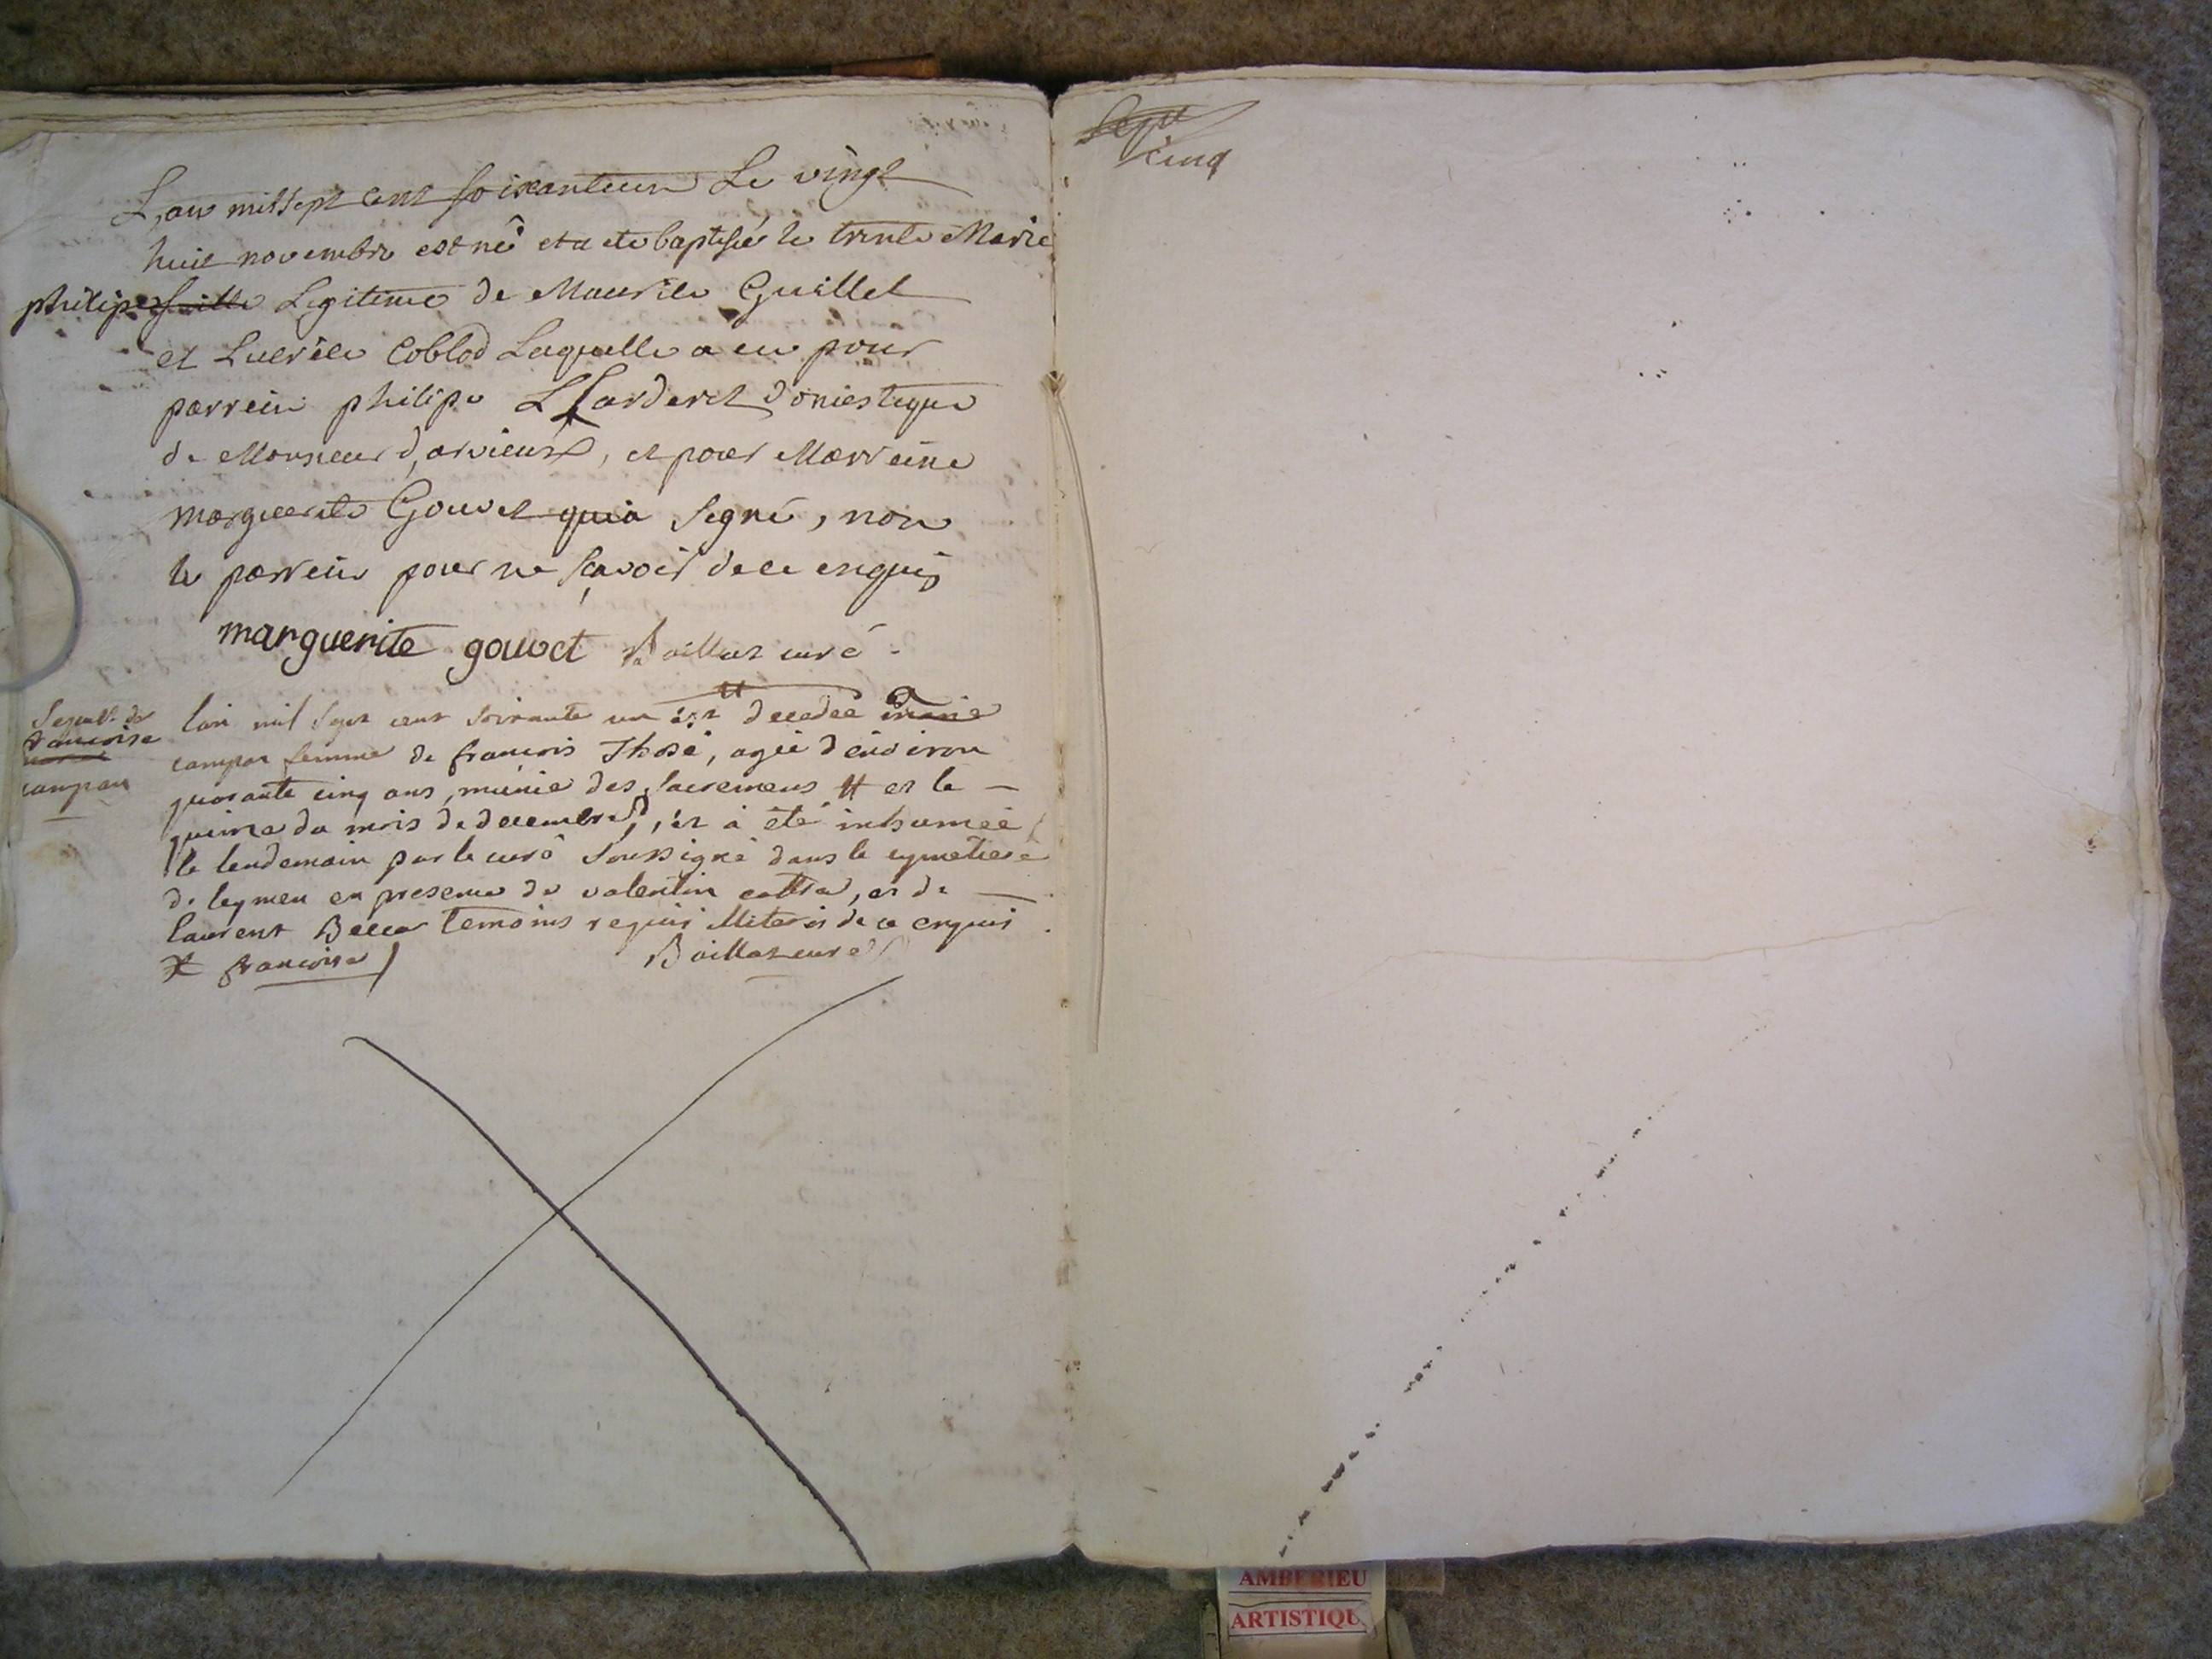 L'an mil sept cent soixanteun Le vingt
huit novembre est né et a ete baptisée le trente Marie
philipe fille Legitime de Maurile Guillet
et Lucrèce Coblod Laquelle a eu pour
parrein philipe Larderet domestique
de Monsieur d'arvieux, et pour Marreine
Marguerite Gouvet qui a signé, non
le parrein pour ne sçavoir de ce enquis
marguerite gouvet Baillat curé
Sepult. de
francoise
campan
lan mil sept cent soixante un est decedée marie
campan femme de francois Thosé, agée d'environ
quarante cinq ans, munie des sacremens # et le
quinze du mois de decembre, et à été inhumée
le lendemain par le curé soussigné dans le cymetiere
de leymen en presence de valentin cottra, et de
laurent Becca temoins requis illiteris de ce enquis
francoise Baillat curé
cinq
AMBERIEU
ARTISTIQU